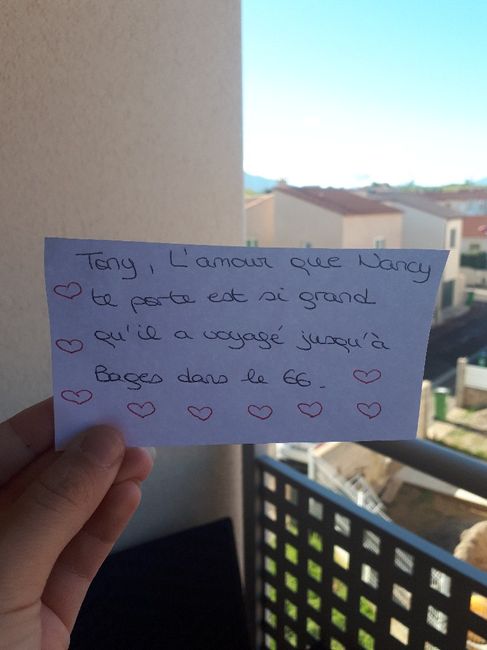 Tony, L'amour que Nancy
te porte est si grand
qu'il a voyagé jusqu'à
Bages dans le 66.